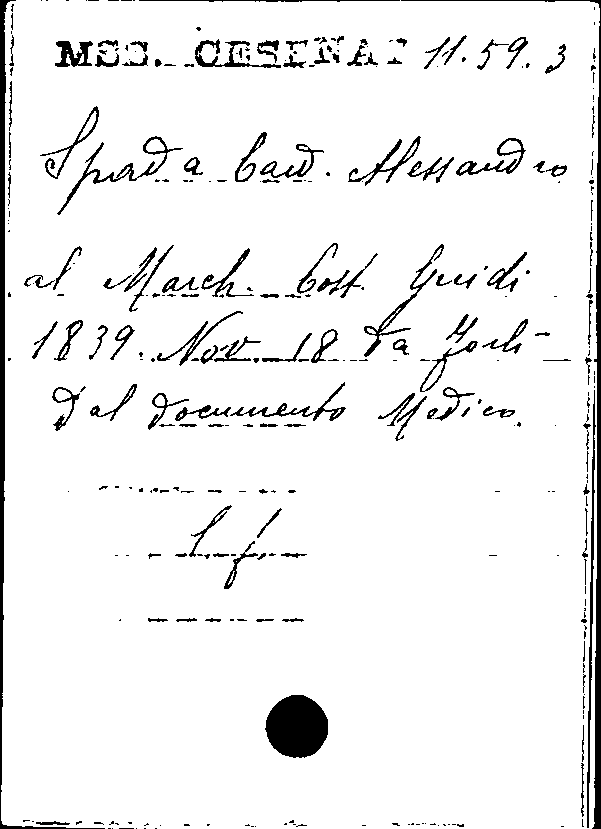 MSS. CESENATI 11.59.3
Spada Card. Alessandro
al March. Cost. Guidi
1839. Nov. 18 da Forlì
Dal documento Medico.
l. f.